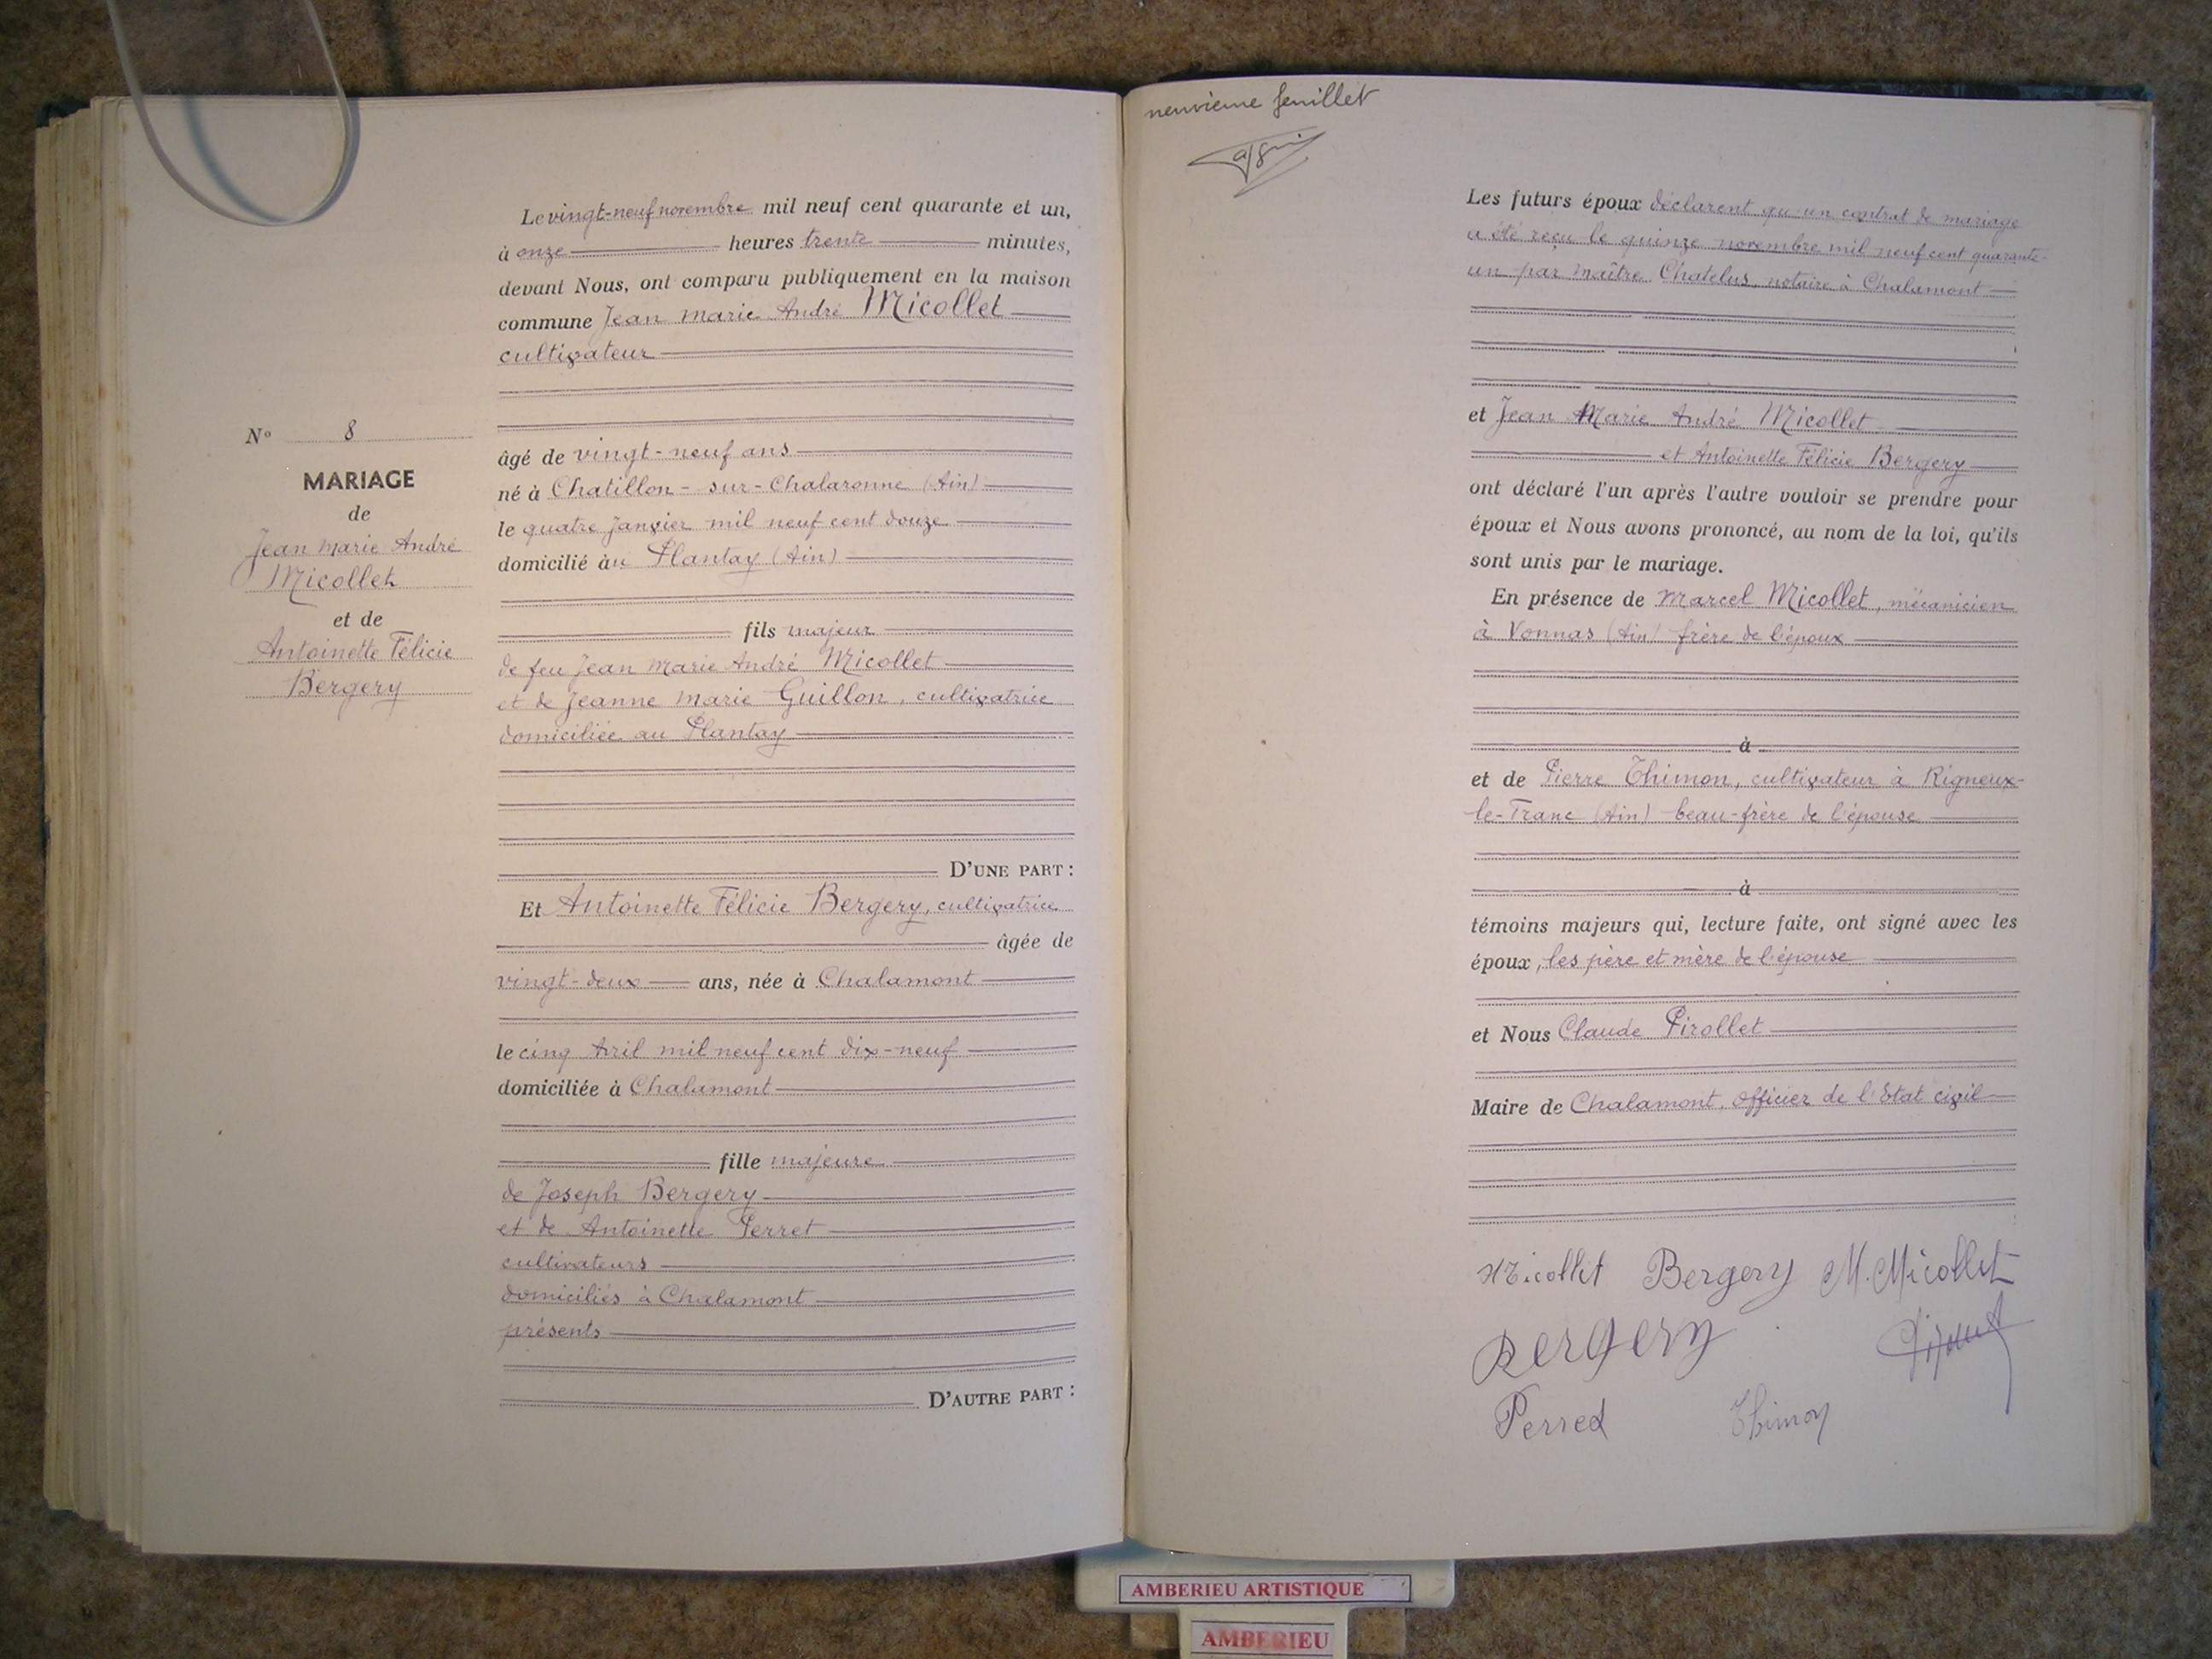 N° 8
MARIAGE
de
Jean Marie André
Micollet
et de
Antoinette Félicie
Bergery
Le vingt-neuf novembre mil neuf cent quarante et un,
à onze heures trente minutes,
devant Nous, ont comparu publiquement en la maison
commune Jean Marie André Micollet
cultivateur
âgé de vingt-neuf ans
né à Chatillon-sur-Chalaronne (Ain)
le quatre Janvier mil neuf cent douze
domicilié au Plantay (Ain)
fils majeur
de feu Jean Marie André Micollet
et de Jeanne Marie Guillon, cultivatrice
domiciliée au Plantay
D'UNE PART :
Et Antoinette Félicie Bergery, cultivatrice
âgée de
vingt-deux ans, née à Chalamont
le cinq Avril mil neuf cent dix-neuf
domiciliée à Chalamont
fille majeure
de Joseph Bergery
et de Antoinette Perret
cultivateurs
domiciliés à Chalamont
présents
D'AUTRE PART :
neuvième feuillet
Les futurs époux déclarent qu'un contrat de mariage
a été reçu le quinze novembre mil neuf cent quarante-
un par Maître Chatelus, notaire à Chalamont
et Jean Marie André Micollet
et Antoinette Félicie Bergery
ont déclaré l'un après l'autre vouloir se prendre pour
époux et Nous avons prononcé, au nom de la loi, qu'ils
sont unis par le mariage.
En présence de Marcel Micollet, mécanicien
à Vonnas (Ain) frère de l'époux
à
et de Pierre Thimon, cultivateur à Rigneux-
le-Franc (Ain) beau-frère de l'épouse
à
témoins majeurs qui, lecture faite, ont signé avec les
époux, les père et mère de l'épouse
et Nous Claude Pirollet
Maire de Chalamont, Officier de l'Etat civil
Micollet Bergery M. Micollet
Bergery
Perret Thimon
AMBERIEU ARTISTIQUE
AMBERIEU